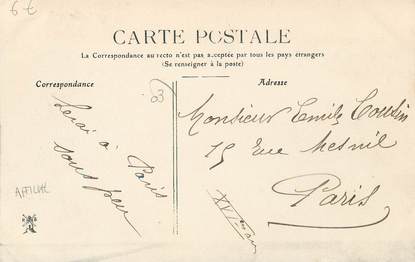 6€
CARTE POSTALE
La Correspondance au recto n'est pas acceptée par tous les pays étrangers
(Se renseigner à la poste)
Correspondance
Adresse
63
Serai à Paris
sous peu
Monsieur Emile Cousin
15 Rue Mesnil
Paris
XVI
AFFICHE